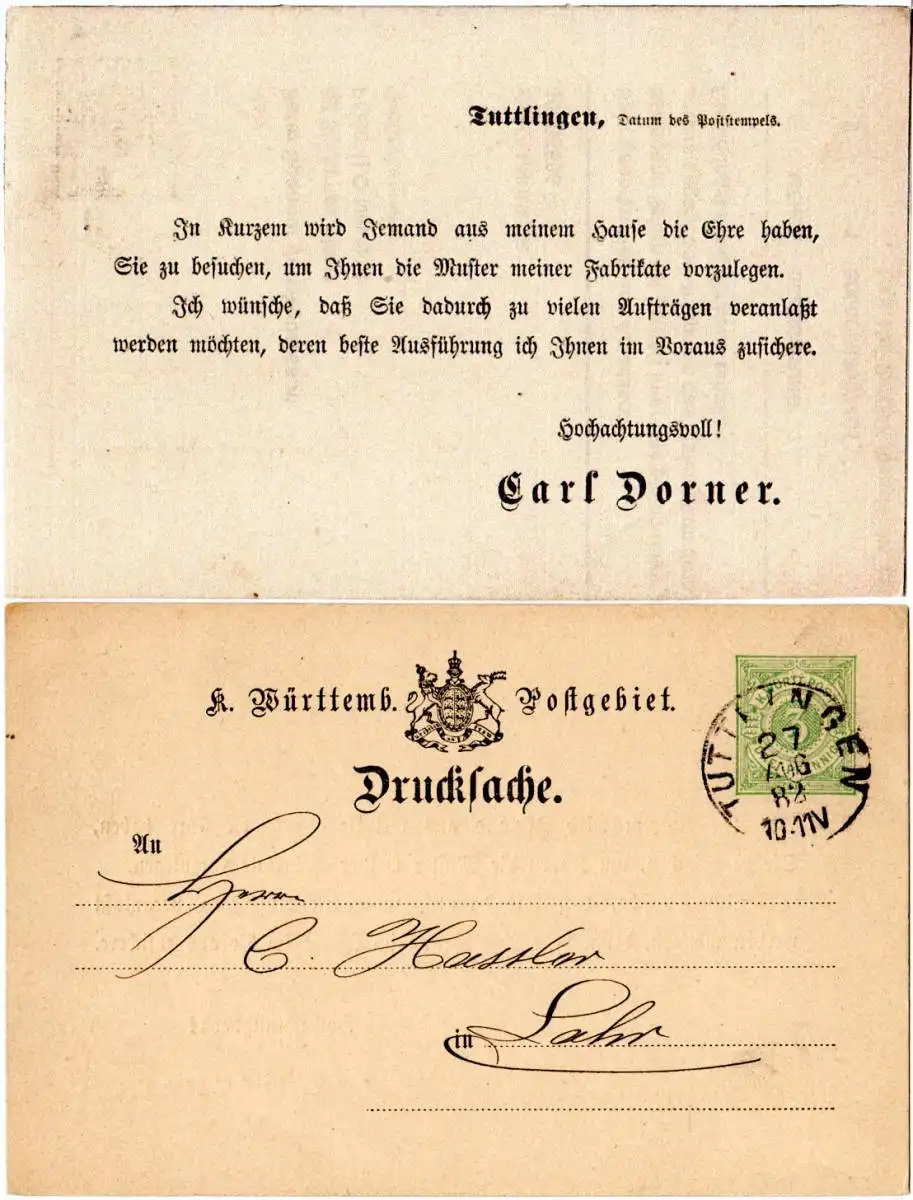 Tuttlingen, Datum des Poststempels.
In Kurzem wird Jemand aus meinem Hause die Ehre haben,
Sie zu besuchen, um Ihnen die Muster meiner Fabrikate vorzulegen.
Ich wünsche, daß Sie dadurch zu vielen Aufträgen veranlaßt
werden möchten, deren beste Ausführung ich Ihnen im Voraus zusichere.
Hochachtungsvoll!
Carl Dorner.
K. Württemb. Postgebiet.
Drucksache.
TUTTLINGEN
27
AUG
82
10-11V
3
An
Herrn
C. Hassler
in Lahr